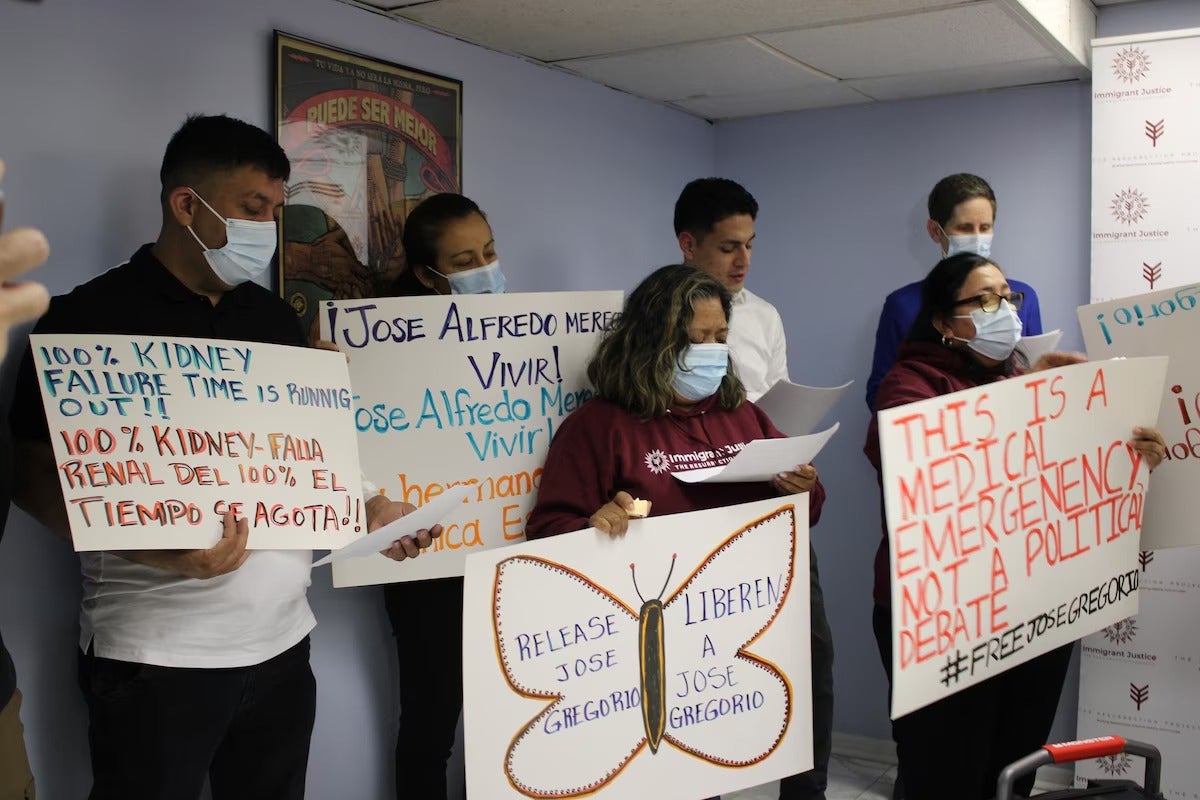 TU VIDA YA NO SERÁ LA MISMA, PERO
PUEDE SER MEJOR
100% KIDNEY
FAILURE TIME IS RUNNIG
OUT!!
100% KIDNEY-FALLA
RENAL DEL 100% EL
TIEMPO SE AGOTA!!
¡JOSE ALFREDO MERECE
VIVIR!
Jose Alfredo Mere
Vivir!
hermano
nica E
Immigrant Justice
THE RESURRECTION
RELEASE
JOSE
GREGORIO
LIBEREN
A
JOSE
GREGORIO
THIS IS A
MEDICAL
EMERGENENCY
NOT A POLITICAL
DEBATE
#FREEJOSEGREGORIO
Immigrant Justice
THE RESURRECTION PROJECT
Immigrant Justice
Immigrant Justice
THE RESURRECTION PROJECT